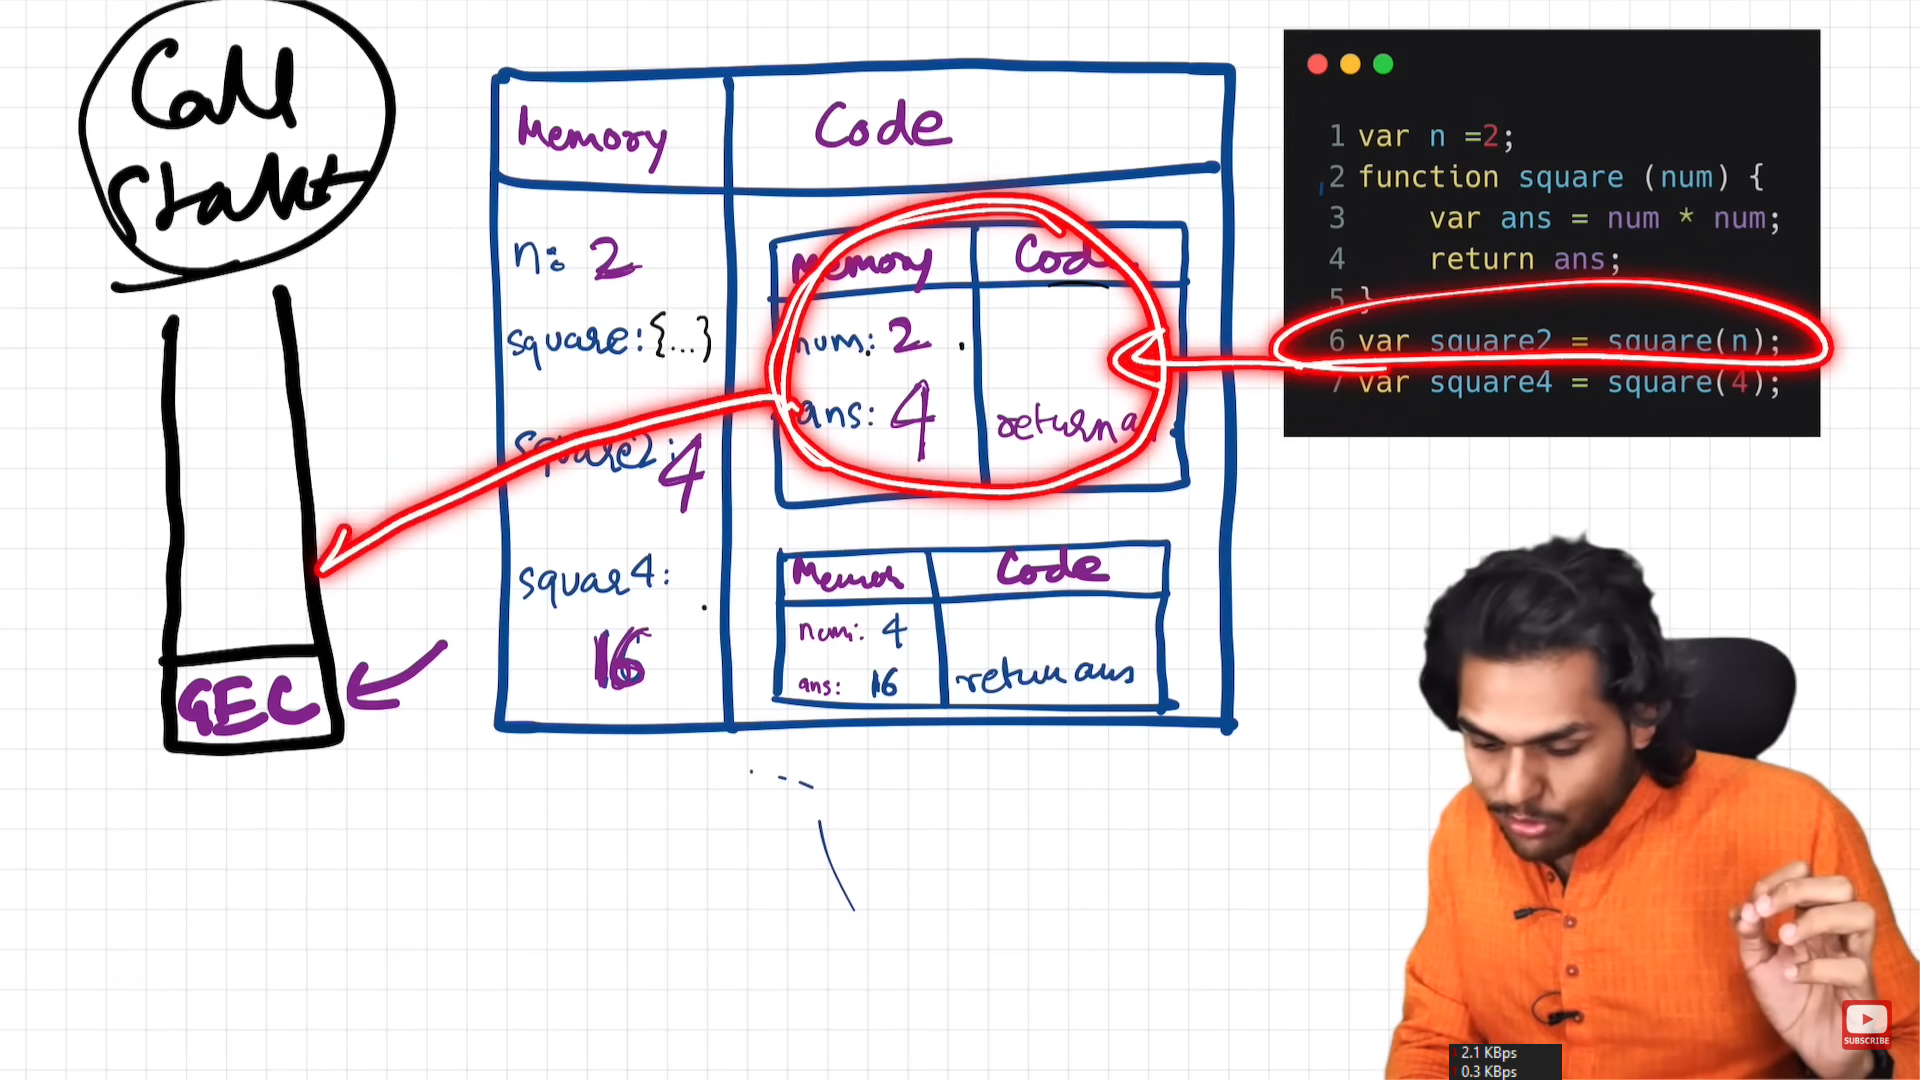 Call
Stack
GEC
Memory
Code
n: 2
square: {...}
square2: 4
squar4:
16
Memory
Code
num: 2
ans: 4
return a
Code
num: 4
ans: 16
return ans
1 var n =2;
2 function square (num) {
3 var ans = num * num;
4 return ans;
5 }
6 var square2 = square(n);
7 var square4 = square(4);
SUBSCRIBE
2.1 KBps
0.3 KBps